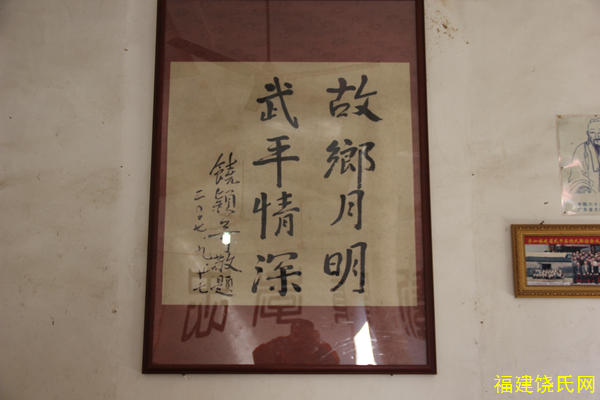 故鄉月明
武平情深
饒穎奇敬題
二〇〇七、九、十七
福建饶氏网